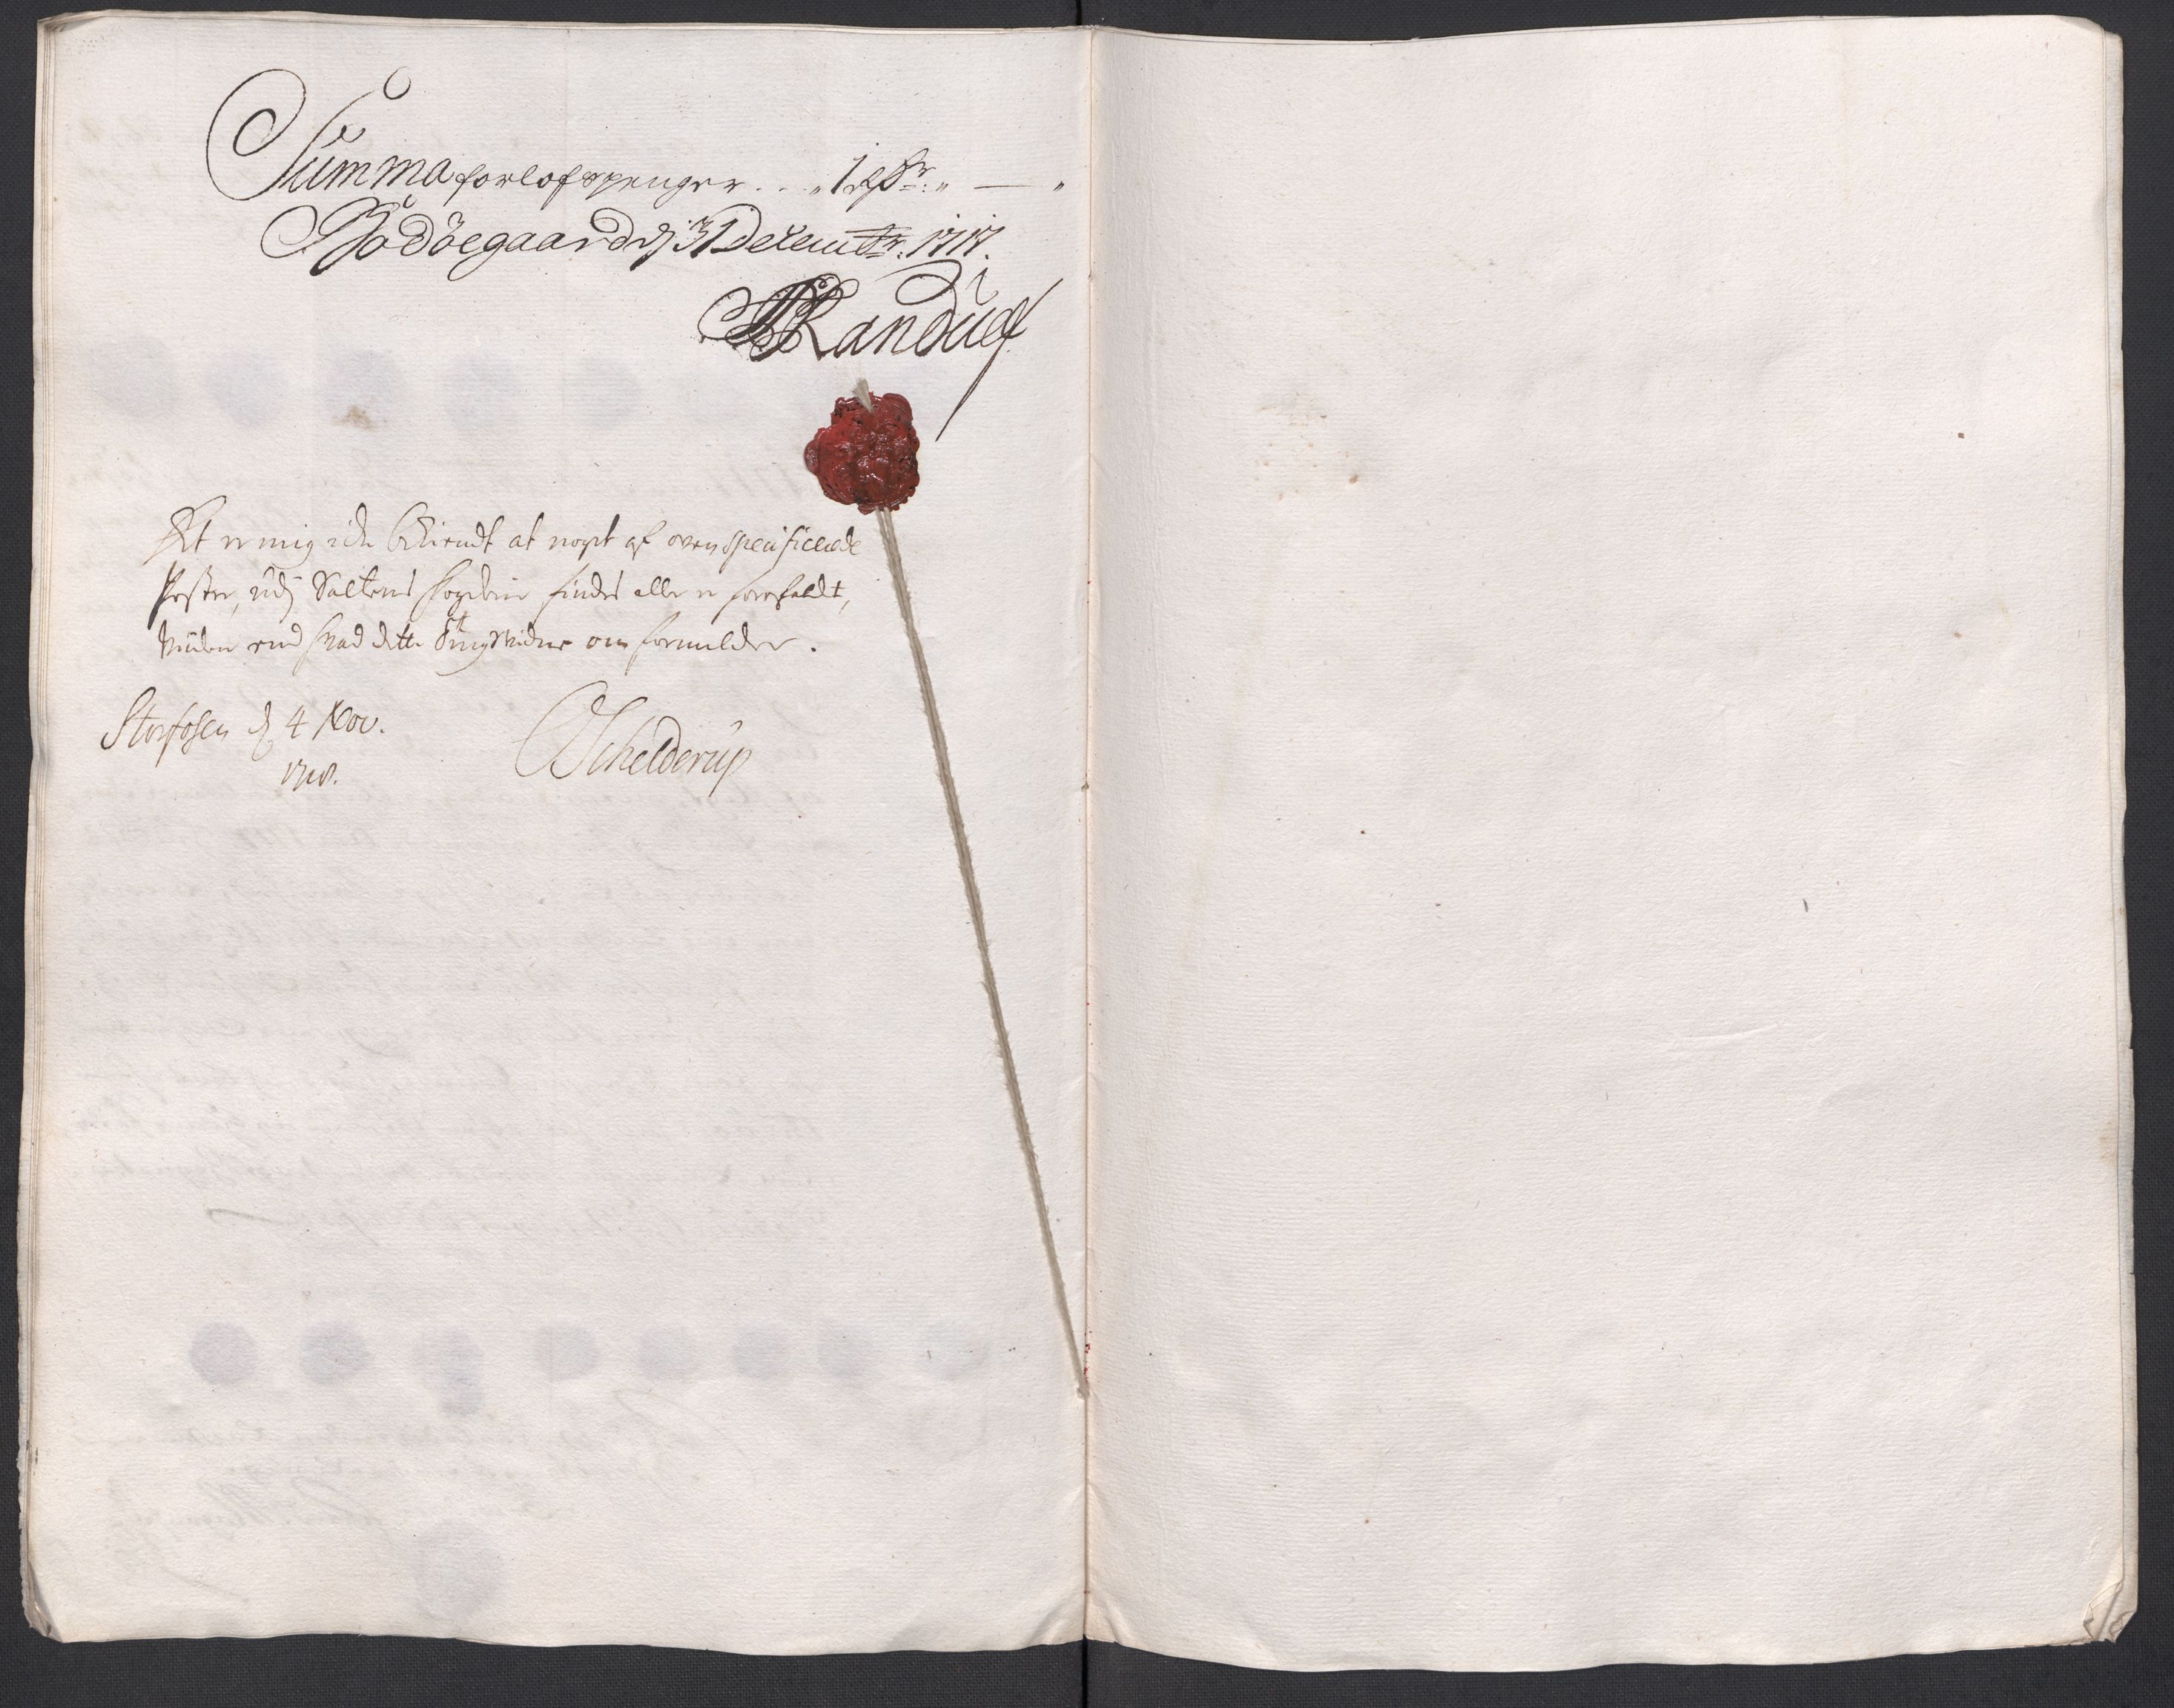 Summa forlofspenger . . „ 1 rdr: „ — „
Bodöegaard dj 31 Decembr: 1717.
Randulf
Det er mig icke bekiendt at noget af ovenspecificerede
Poster, udj Saltens fogderie findes eller er forefaldt,
viidere end hvad dette Tingsvidne om formelder.
Storfosen dj 4 Nov.
1718.
Schelderup